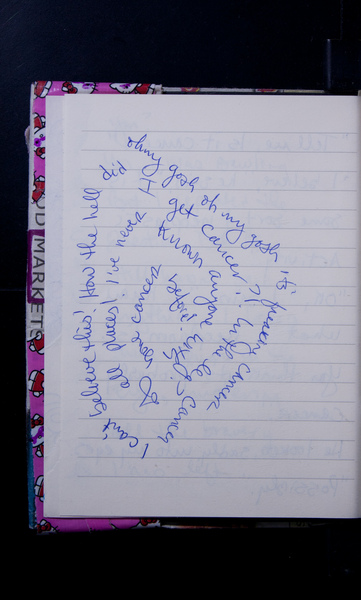 oh my gosh oh my gosh it's fucking cancer
cancer
I can't believe this! How the hell did
I get cancer?! In the leg
all places! I've never
known anyone
bone cancer
before!
D MARKETS